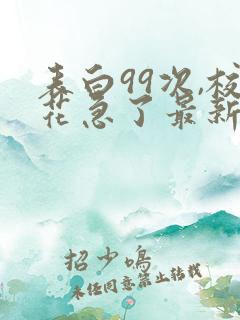 表白99次,校
花急了最新
招少鸣
未经同意禁止转载